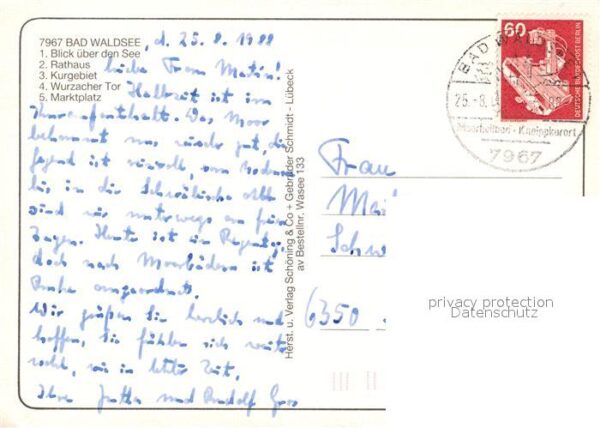 7967 BAD WALDSEE
1. Blick über den See
2. Rathaus
3. Kurgebiet
4. Wurzacher Tor
5. Marktplatz
, d. 25.8.1988
Liebe Frau
Halbzeit ist im
Kuraufenthalt. Das Moor
bekommt uns wieder gut, die
Gegend ist reizvoll, vom Boden
bis in die Schwäbische Alb
sind wir unterwegs an freien
Tagen. Heute ist ein Regentag,
doch nach Moorbädern ist
Ruhe angeordnet.
Wir grüßen Sie herzlich und
hoffen, Sie fühlen sich weiter
wohl, wie in letzter Zeit.
Ihre Jutta und Rudolf
Herst. u. Verlag Schöning & Co + Gebrüder Schmidt - Lübeck
av Bestellnr. Wasee 133
60
DEUTSCHE BUNDESPOST BERLIN
BAD
25.-8.
Moorheilbad - Kneippkurort
7967
Frau
6350
privacy protection
Datenschutz